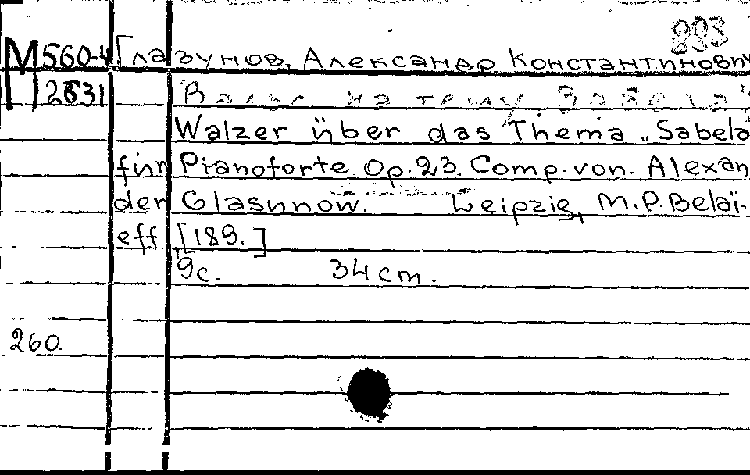 893
M560-4 Глазунов, Александр Константинович
2631 Вальс на тему "Sabela"
Walzer über das Thema „Sabela
für Pianoforte. Op. 23. Comp. von. Alexan
der Glasunow. Leipzig, M.P. Belai-
eff [189.]
9с. 34 cm.
260.